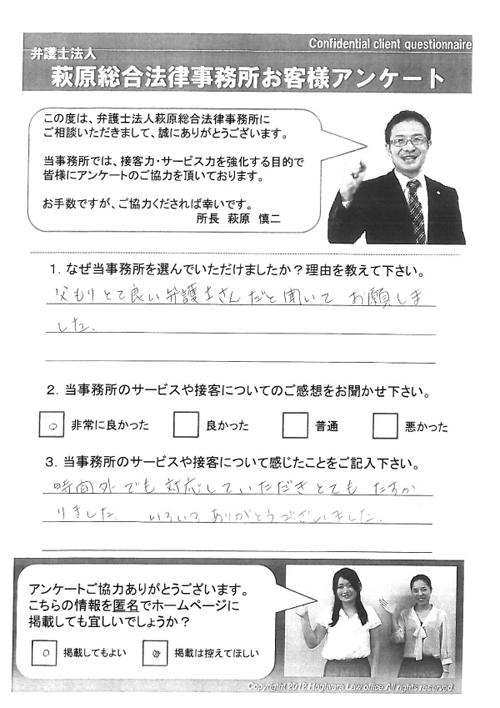 Confidential client questionnaire
弁護士法人
萩原総合法律事務所お客様アンケート
この度は、弁護士法人萩原総合法律事務所に
ご相談いただきまして、誠にありがとうございます。
当事務所では、接客力・サービス力を強化する目的で
皆様にアンケートのご協力を頂いております。
お手数ですが、ご協力くだされば幸いです。
所長 萩原 慎二
1. なぜ当事務所を選んでいただけましたか？理由を教えて下さい。
父もりとて良い弁護士さんだと聞いて お願しま
した、
2. 当事務所のサービスや接客についてのご感想をお聞かせ下さい。
非常に良かった 良かった 普通 悪かった
3. 当事務所のサービスや接客について感じたことをご記入下さい。
時間外でも対応していただきとても たすか
りました、 いろいろありがとうございました.
アンケートご協力ありがとうございます。
こちらの情報を匿名でホームページに
掲載しても宜しいでしょうか？
掲載してもよい 掲載は控えてほしい
Copyright 2012 Hagiwara Law office All rights reserved